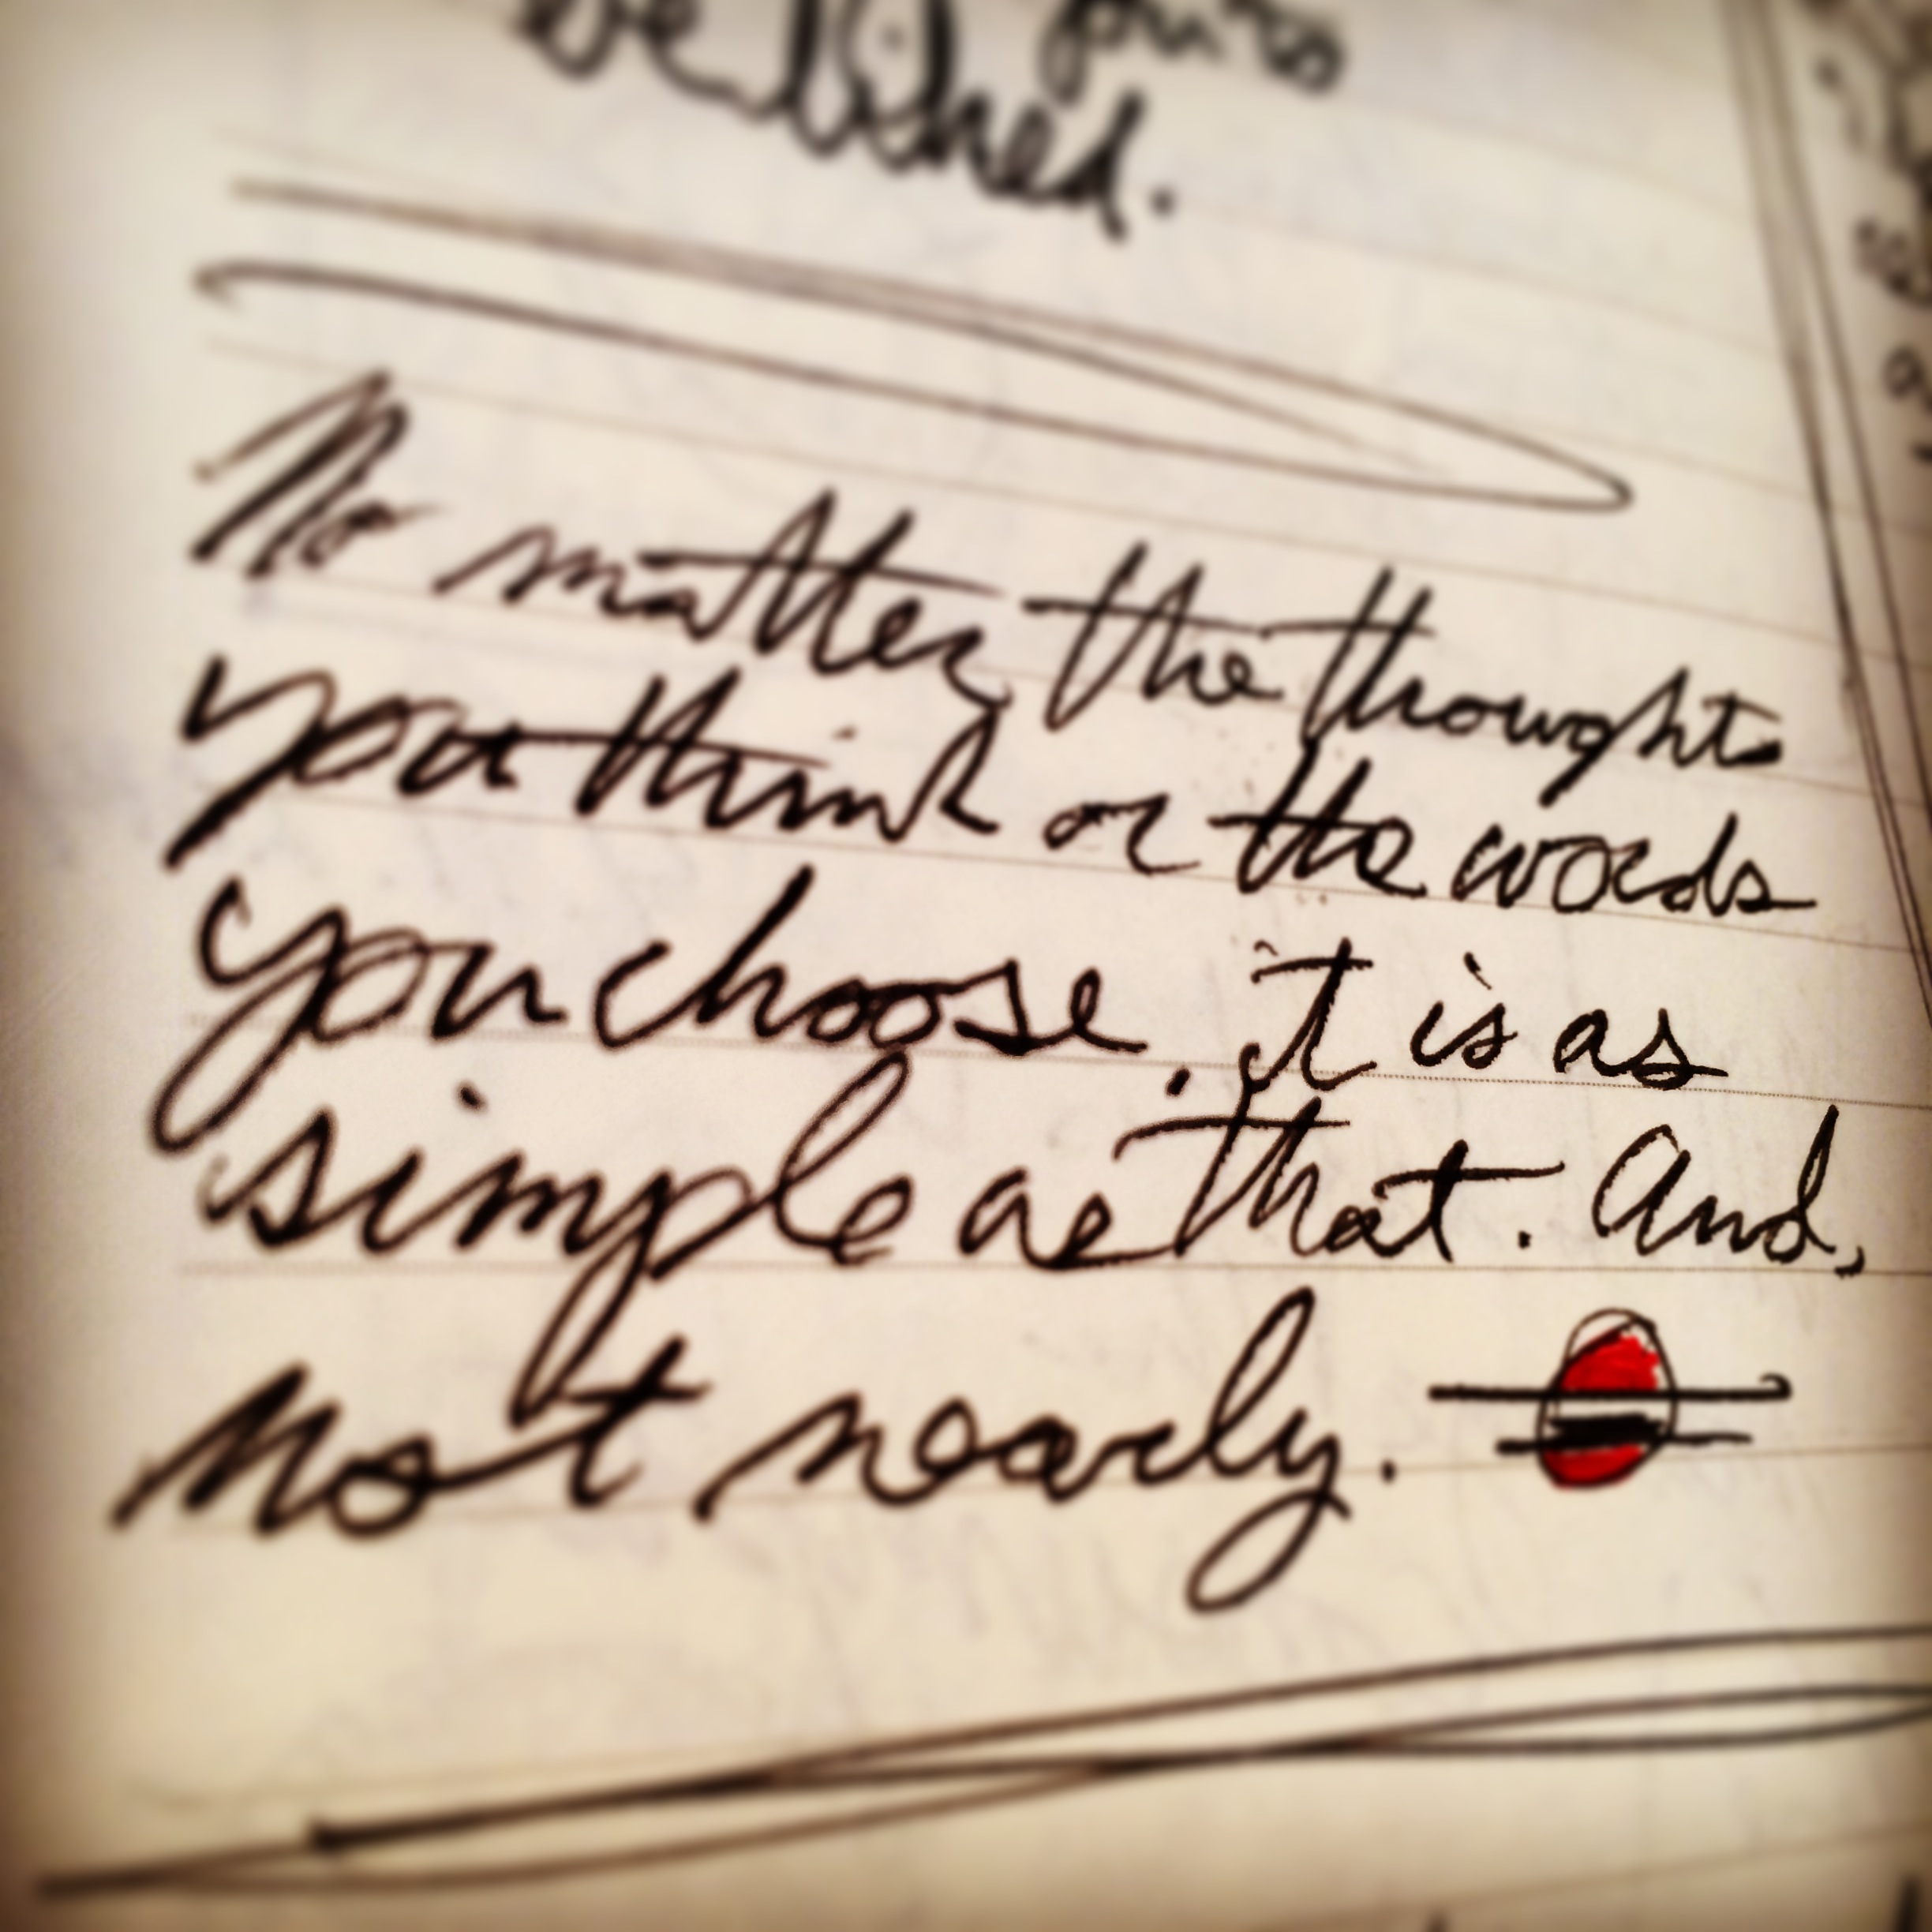 No matter the thoughts
you think or the words
you choose, it is as
simple as that. And,
not nearly.